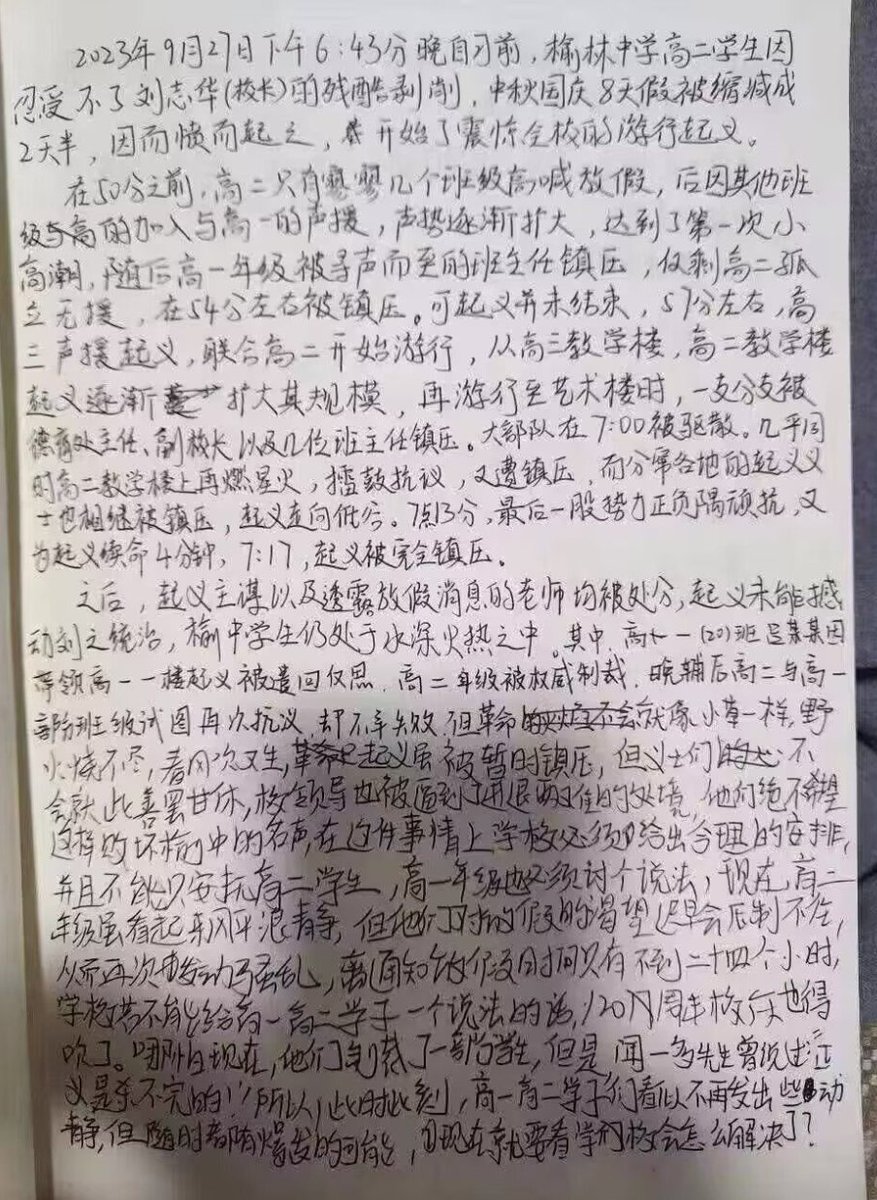 2023年9月27日下午6:43分晚自习前,榆林中学高二学生因
忍受不了刘志华(校长)的残酷剥削,中秋国庆8天假被缩减成
2天半,因而愤而起之,开始了震惊全校的游行起义。
在50分之前,高二只有寥寥几个班级高喊放假,后因其他班
级的加入与高一的声援,声势逐渐扩大,达到了第一次小
高潮,随后高一年级被寻声而至的班主任镇压,仅剩高二孤
立无援,在54分左右被镇压。可起义并未结束,57分左右,高
三声援起义,联合高二开始游行,从高三教学楼,高二教学楼
起义逐渐扩大其规模,再游行至艺术楼时,一支分支被
德育处主任、副校长以及几位班主任镇压。大部队在7:00被驱散。几乎同
时高二教学楼上再燃星火,擂鼓抗议,又遭镇压,而分布各地的起义义
士也相继被镇压,起义走向低谷。7点13分,最后一股势力正负隅顽抗,又
为起义续命4分钟,7:17,起义被完全镇压。
之后,起义主谋以及透露放假消息的老师均被处分,起义未能撼
动刘之统治,榆中学生仍处于水深火热之中。其中,高一(20)班吕某某因
带领高一一楼起义被遣回仅思,高二年级被权威制裁,晚辅后高二与高一
部分班级试图再次抗议,却不幸失败,但革命就像小草一样,野
火烧不尽,春风吹又生,起义虽被暂时镇压,但义士们不
会就此善罢甘休,校领导也被逼到了进退两难的处境,他们绝不希望
这样败坏榆中的名声,在这件事情上学校必须给出合理的安排,
并且不能只安抚高二学生,高一年级也必须讨个说法,现在高二
年级虽看起来风平浪静,但他们对的假的渴望迟早会压制不住,
从而再次发动骚乱,离通知的假日时间只有不到二十四个小时,
学校若不能给高一高二学子一个说法的话,120周年校庆也得
吹了。到现在,他们制裁了一部分学生,但是,闻一多先生曾说过"正
义是杀不完的!"所以,此时此刻,高一高二学子们看似不再发出些动
静,但随时都有爆发的可能,现在就要看学校会怎么解决了?